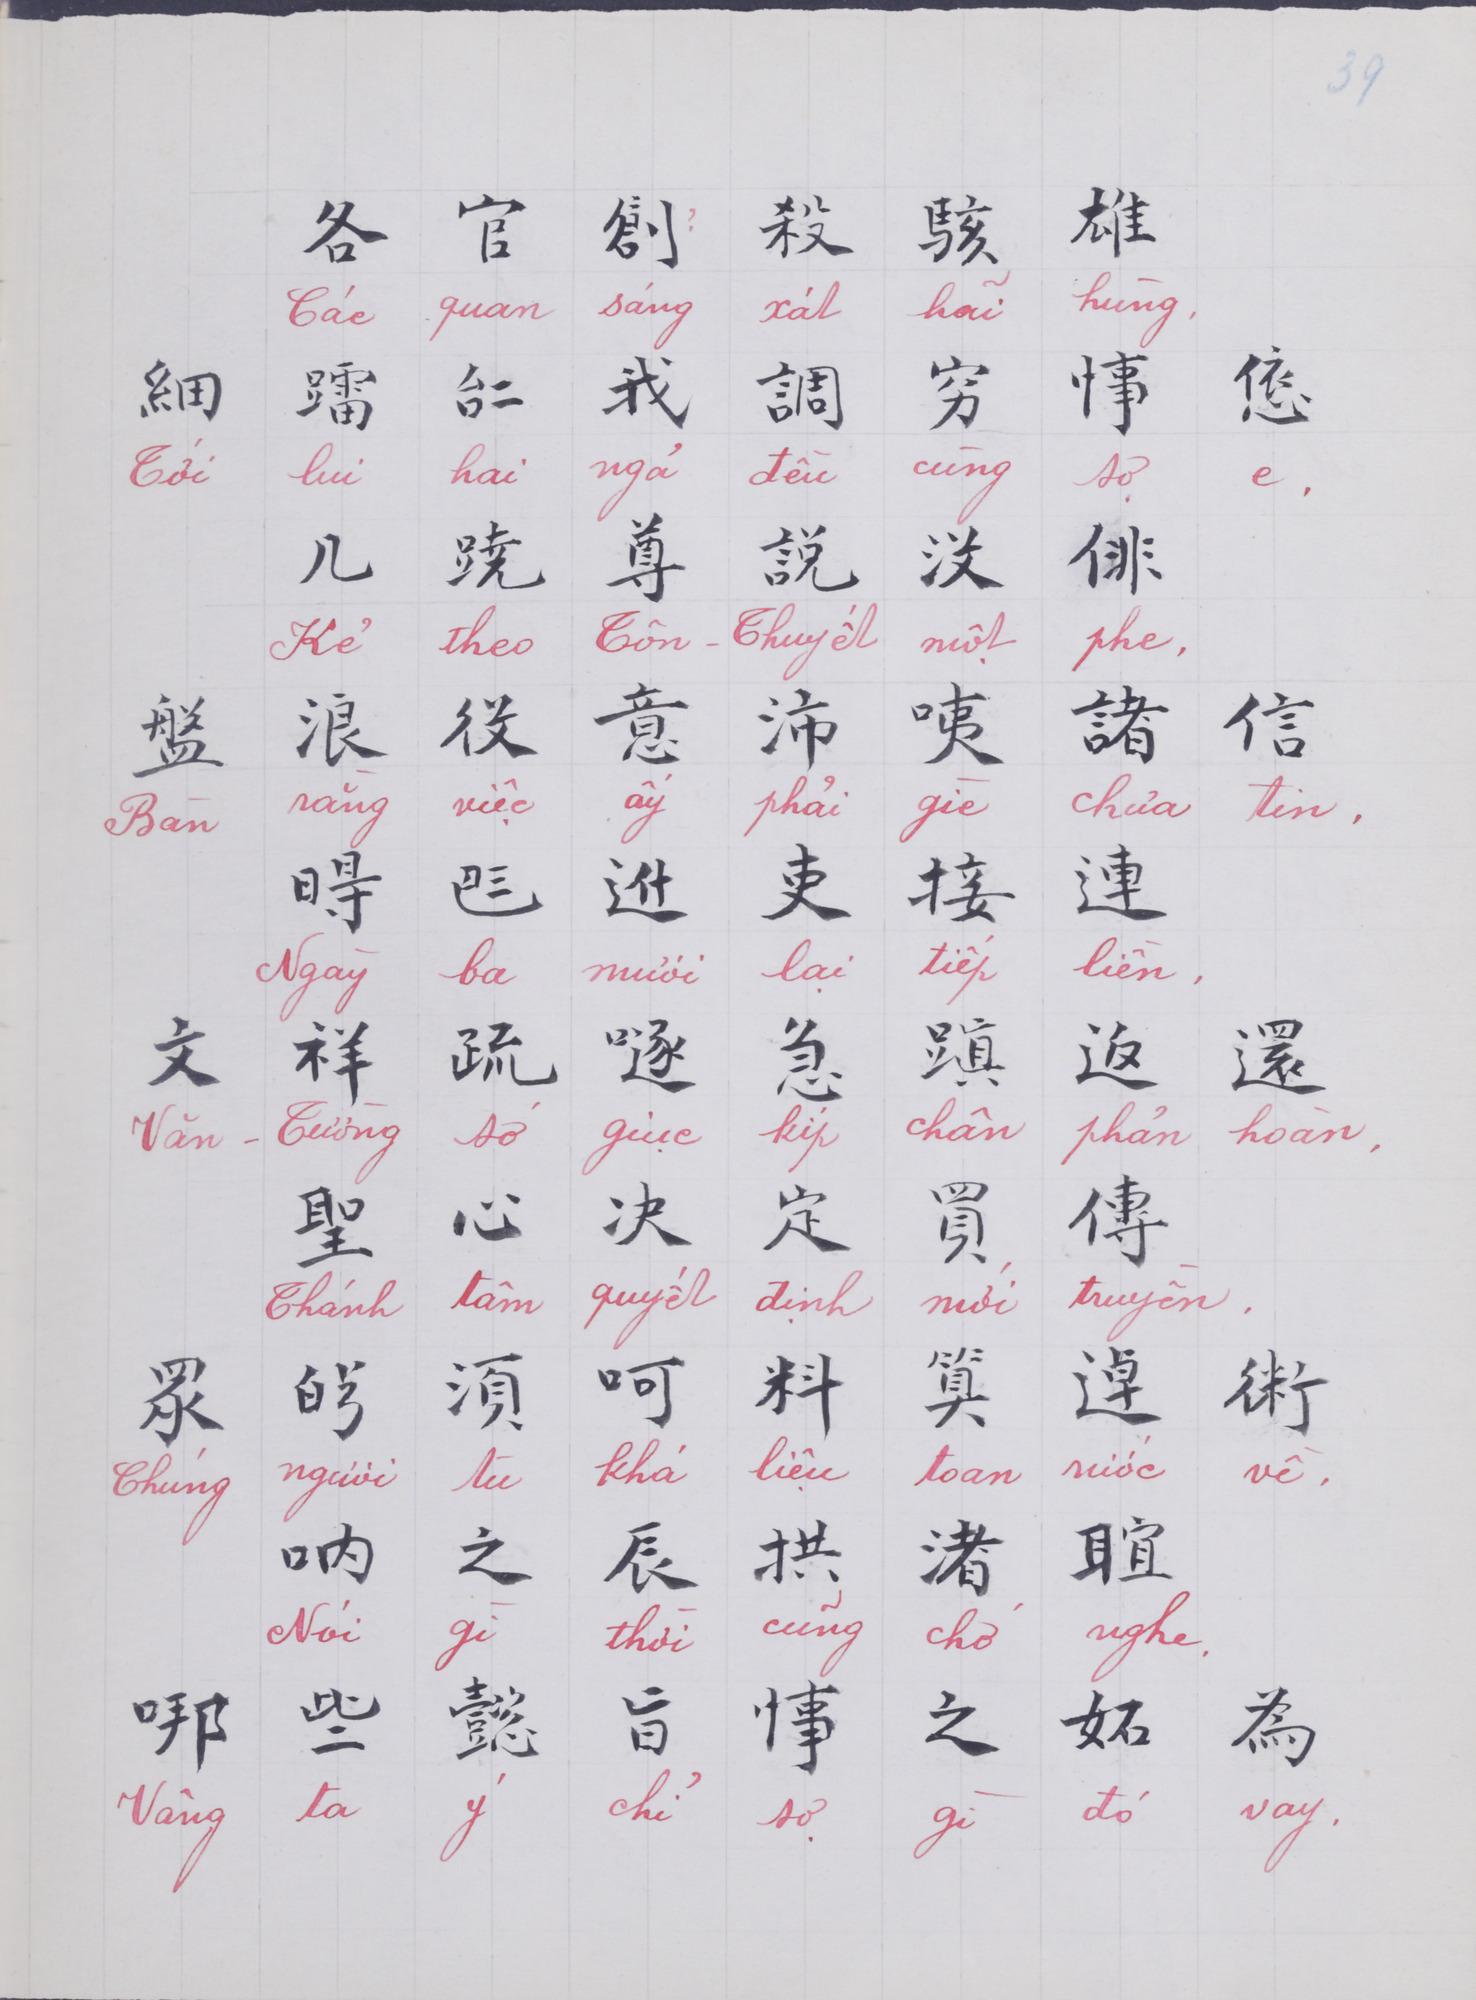 39
各 官 創 ? 殺 駭 雄
Các quan sáng xát hãi hùng,
細 䠣 𠄩 我 調 窮 悸 㥋
Tới lui hai ngả đều cùng sợ e,
几 蹺 尊 説 没 俳
Kẻ theo Tôn-Thuyết một phe,
盤 浪 役 意 沛 咦 諸 信
Bàn rằng việc ấy phải giè chưa tin,
𣈜 𠀧 𨑮 吏 接 連
Ngày ba mươi lại tiếp liền,
文 祥 疏 㖹 急 蹎 返 還
Văn-Tường sớ giục kíp chân phản hoàn,
聖 心 决 定 買 傳
Thánh tâm quyết định mới truyền,
眾 𠊛 須 呵 料 算 逴 術
Chúng người tu khá liệu toan rước về,
吶 之 辰 拱 渚 聐
Nói gì thời cũng chớ nghe,
哪 些 懿 旨 悸 之 妬 為
Vâng ta ý chỉ sợ gì đó vay,